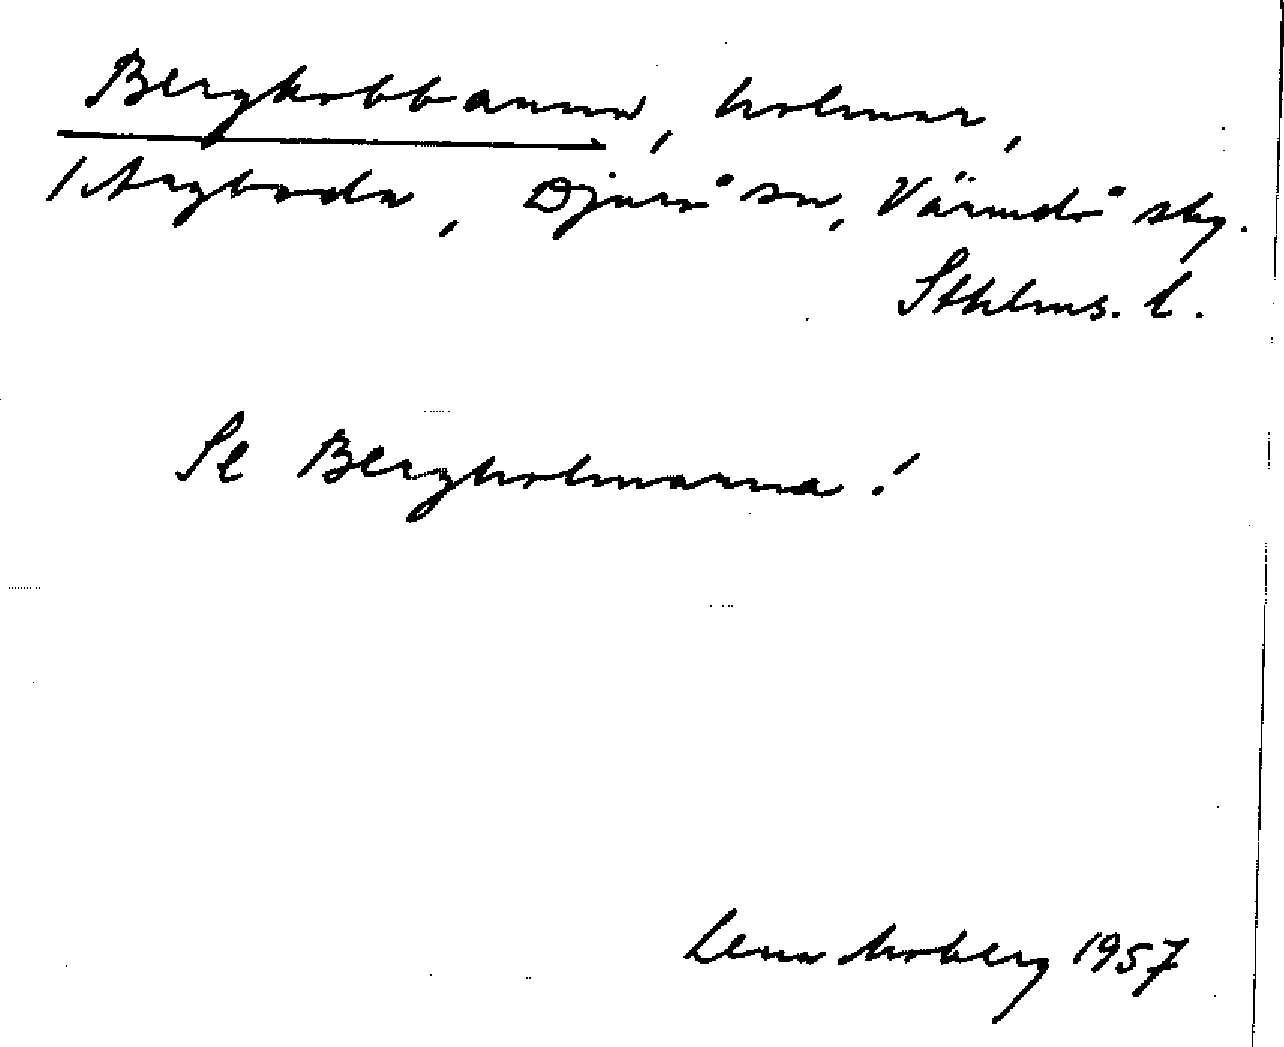 Bergkobbarna, holmar,
Djurö sn, Värmdö skg.
Sthlms. l.
Se Bergholmarna!
Lena Moberg 1957